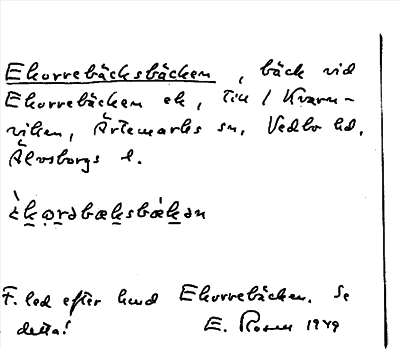 Ekorrebäcksbäcken, bäck vid
Ekorrebäcken ek, till / Kvarn-
viken, Ärtemarks sn, Vedbo hd,
Älvsborgs l.
F. led efter hmd Ekorrebäcken. Se
detta! E. Rosen 1949